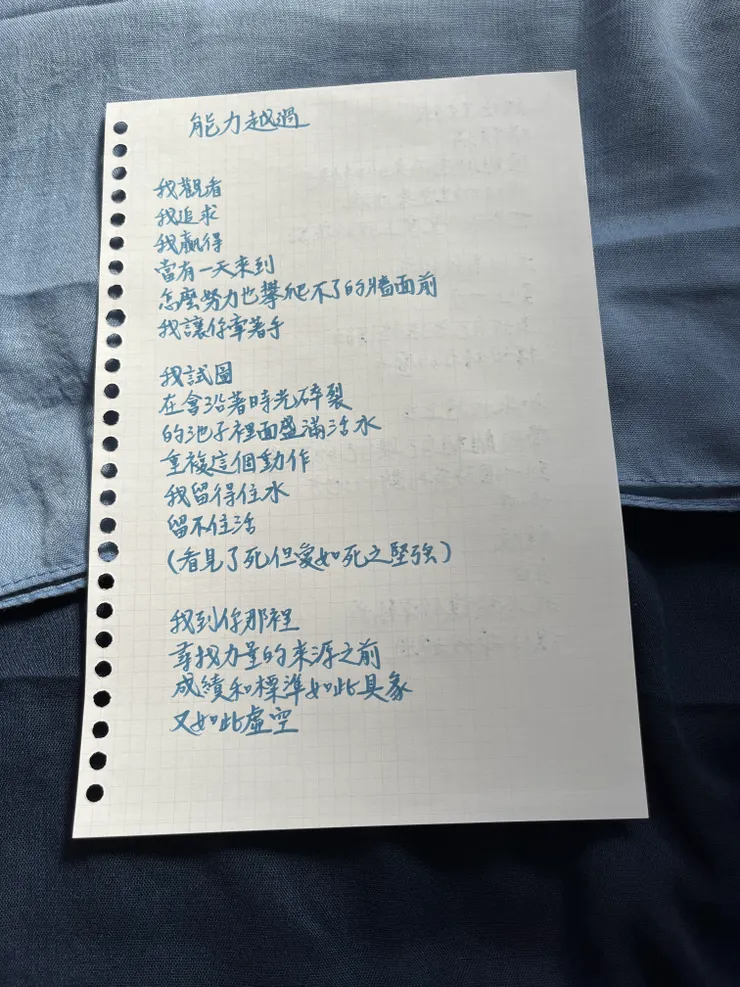 能力越過
我觀看
我追求
我贏得
當有一天來到
怎麼努力也攀爬不了的牆面前
我讓你牽著手
我試圖
在會沿著時光碎裂
的池子裡面盛滿活水
重複這個動作
我留得住水
留不住活
(看見了死但愛如死之堅強)
我到你那裡
尋找力量的來源之前
成績和標準如此具象
又如此虛空